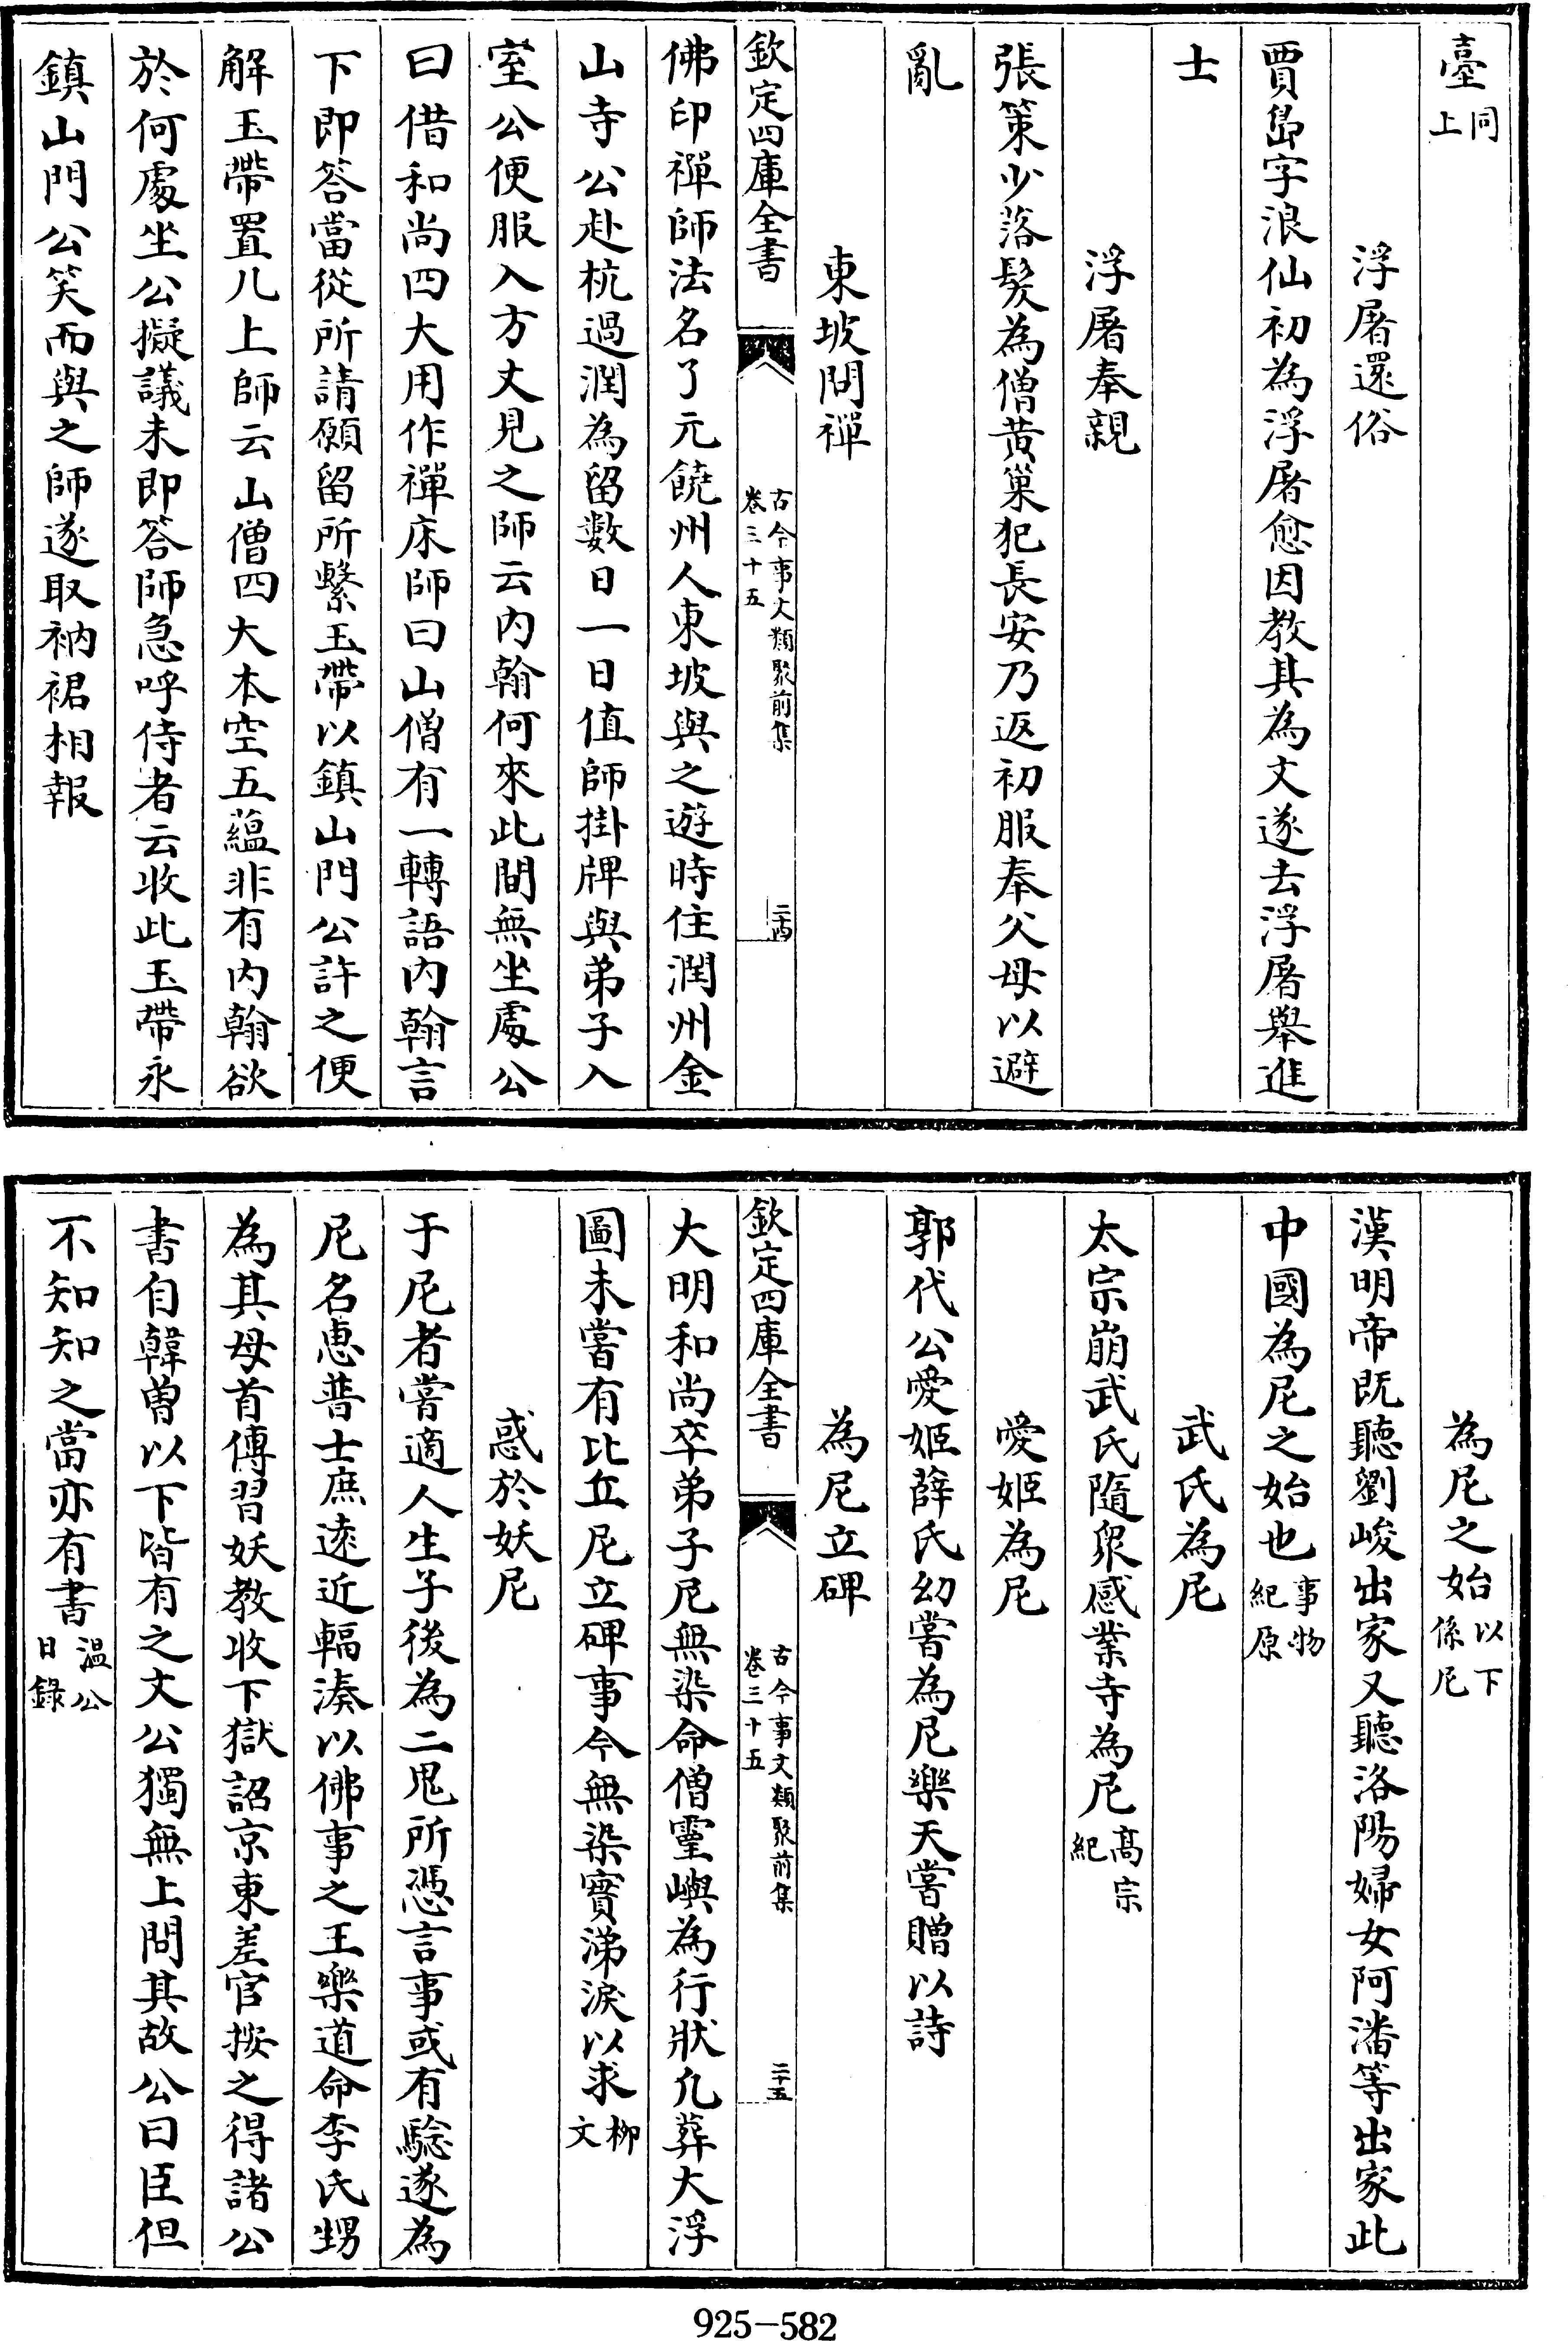 臺同上
浮屠還俗
賈島字浪仙初為浮屠愈因教其為文遂去浮屠舉進
士
浮屠奉親
張策少落髮為僧黄巢犯長安乃返初服奉父母以避
亂
東坡問禪
欽定四庫全書 古今事文類聚前集卷三十五 二十四
佛印禪師法名了元饒州人東坡與之遊時住潤州金
山寺公赴杭過潤為留數日一日值師掛牌與弟子入
室公便服入方丈見之師云内翰何來此間無坐處公
曰借和尚四大用作禪床師曰山僧有一轉語内翰言
下即答當從所請願留所繫玉帶以鎮山門公許之便
解玉帶置几上師云山僧四大本空五蘊非有内翰欲
於何處坐公擬議未即答師急呼侍者云收此玉帶永
鎮山門公笑而與之師遂取衲裙相報
為尼之始以下係尼
漢明帝既聽劉峻出家又聽洛陽婦女阿潘等出家此
中國為尼之始也事物紀原
武氏為尼
太宗崩武氏隨衆感業寺為尼高宗紀
愛姬為尼
郭代公愛姬薛氏幼嘗為尼樂天嘗贈以詩
為尼立碑
欽定四庫全書 古今事文類聚前集卷三十五 二十五
大明和尚卒弟子尼無染命僧靈嶼為行狀凡葬大浮
圖未嘗有比丘尼立碑事今無染實涕淚以求柳文
惑於妖尼
于尼者嘗適人生子後為二鬼所憑言事或有驗遂為
尼名惠普士庶遠近輻湊以佛事之王樂道命李氏甥
為其母首傳習妖教收下獄詔京東差官按之得諸公
書自韓曾以下皆有之文公獨無上問其故公曰臣但
不知知之當亦有書溫公日錄
925-582